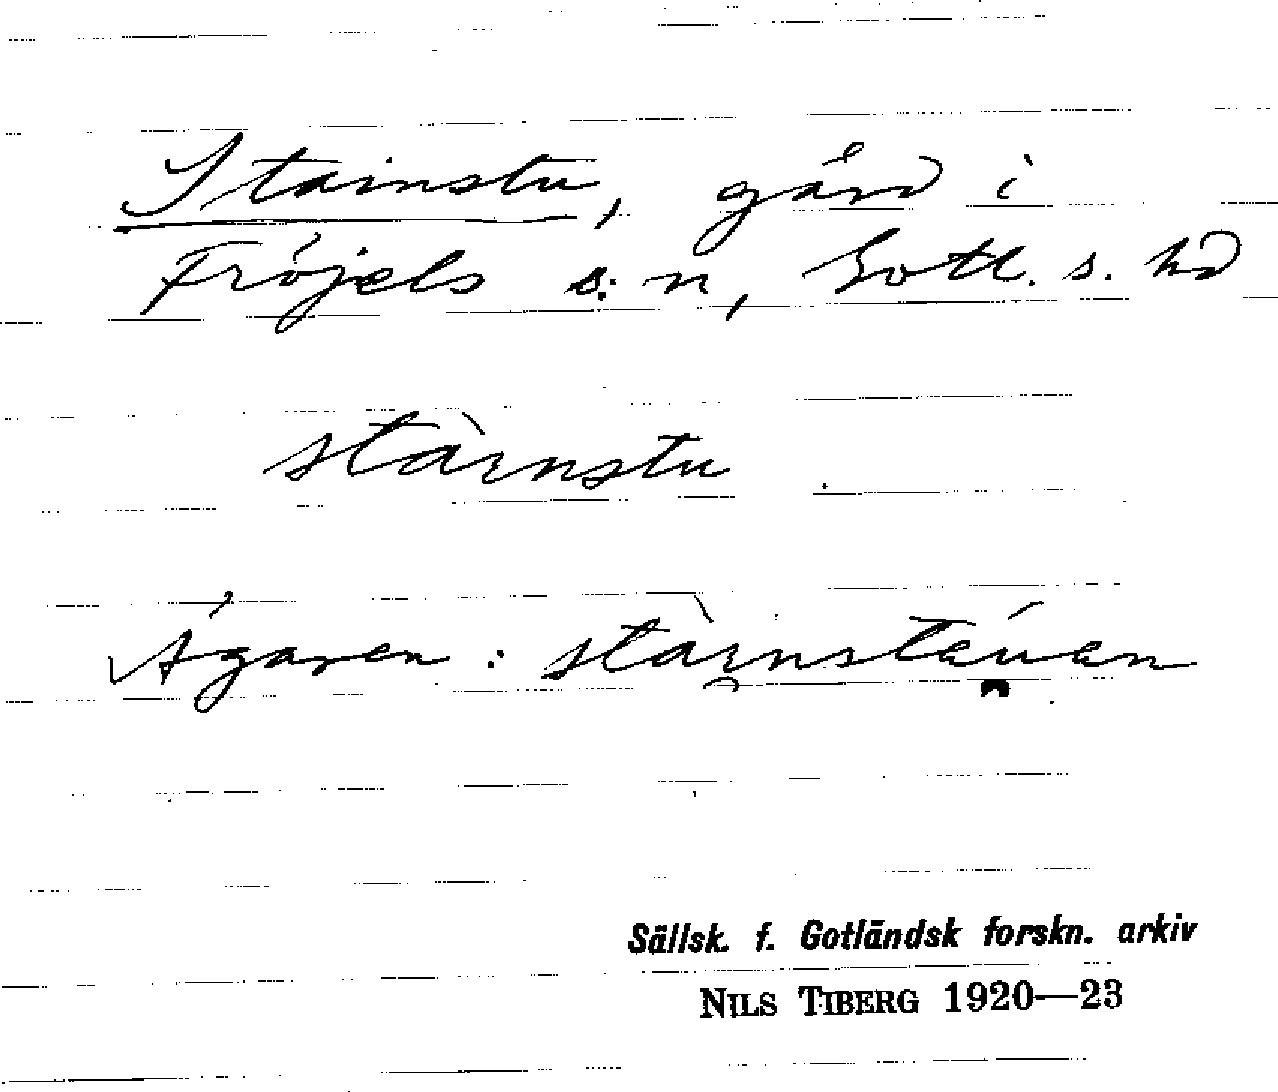 Stainstu, gård i
Fröjels s:n, Gotl. s. hd
stàinstu
Ägaren: stàinstáuen
Sällsk. f. Gotländsk forskn. arkiv
NILS TIBERG 1920—23